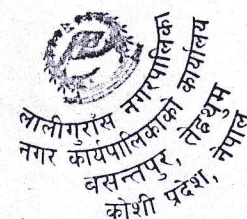 लालीगुराँस नगरपालिका
नगर कार्यपालिकाको कार्यालय
बसन्तपुर, तेह्रथुम
कोशी प्रदेश, नेपाल